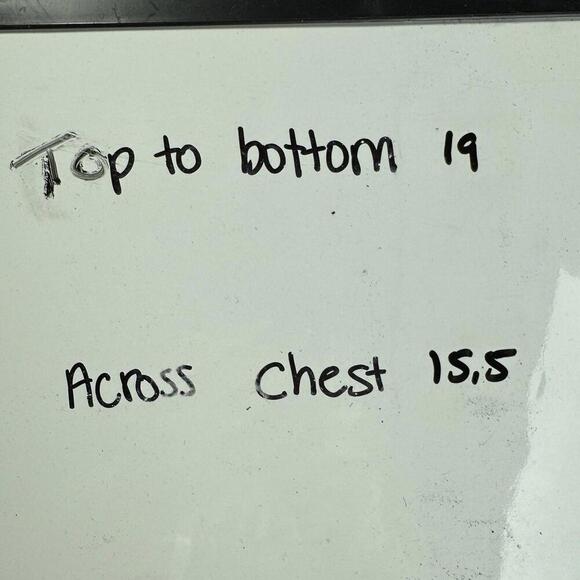 Top to bottom 19
Across Chest 15.5